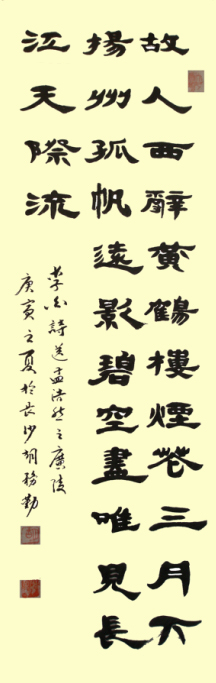 故人西辭黃鶴樓煙花三月下
揚州孤帆遠影碧空盡唯見長
江天際流
李白詩送孟浩然之廣陵
庚寅之夏於長沙胡務勤